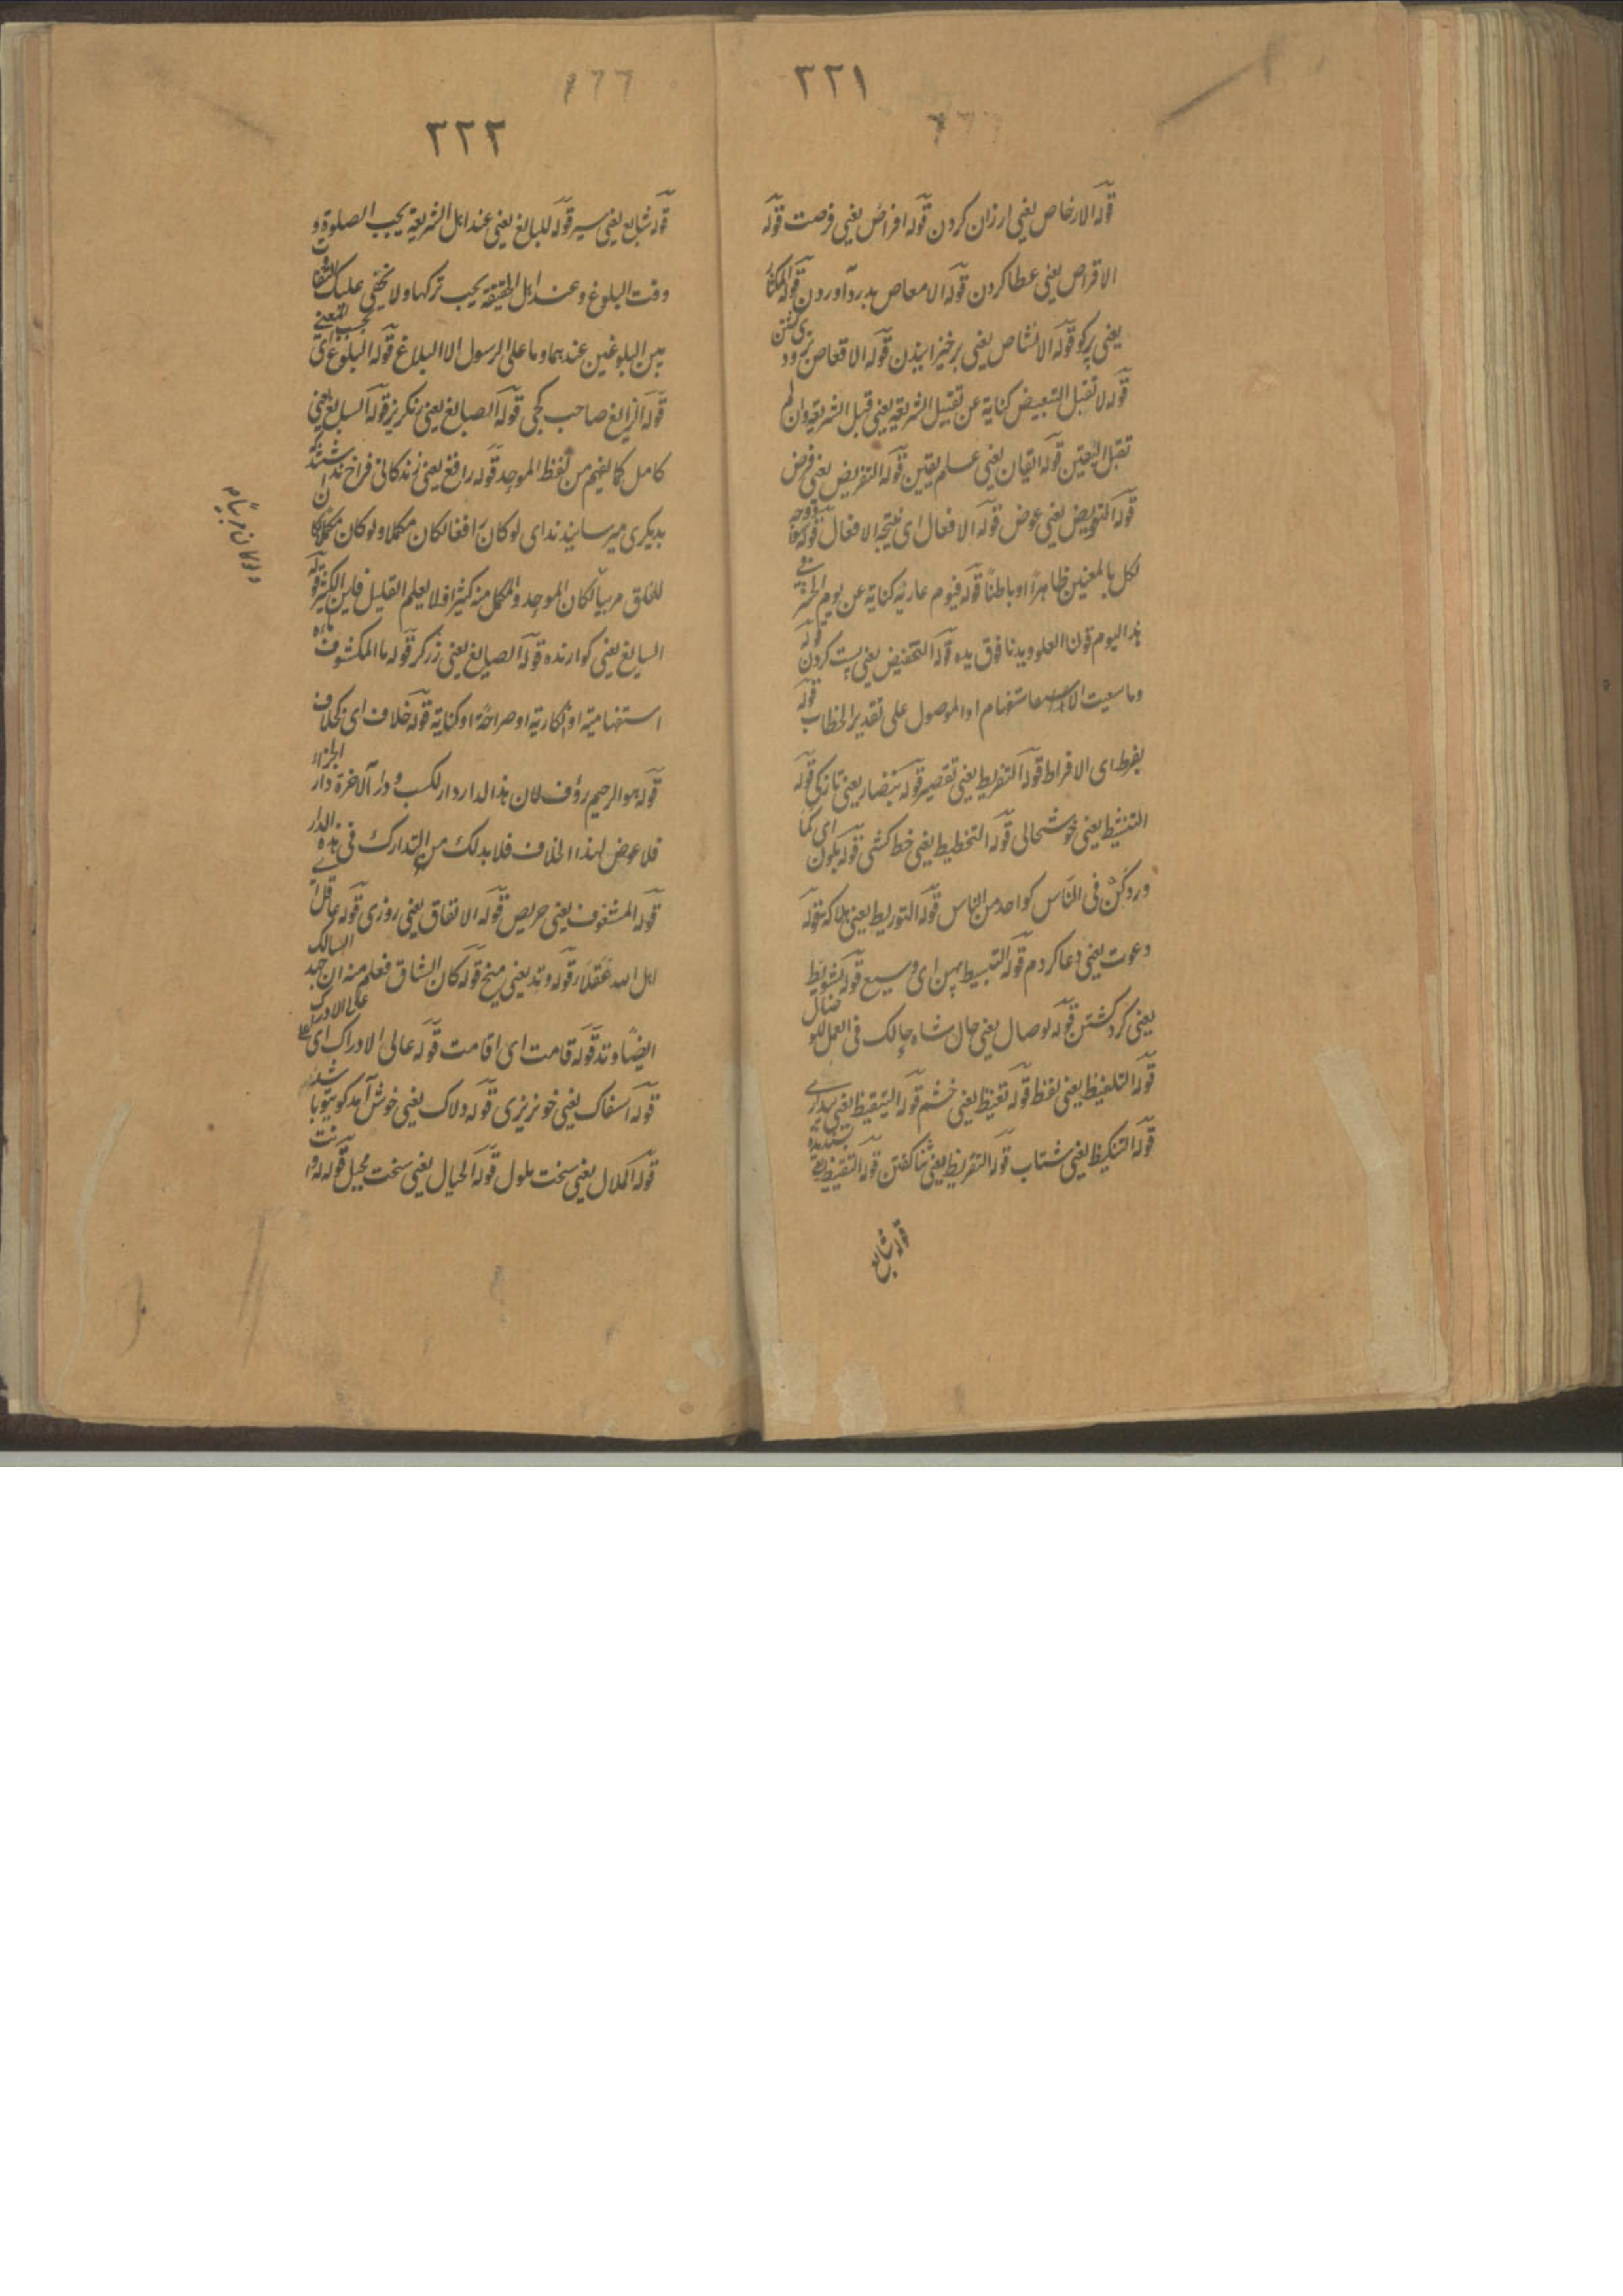 ٣٢١
قوله الارخاص یعنی ارزان کردن قوله افراض یعنی فرصت قوله
الاقراص یعنی عطا کردن قوله الامعاص بدرد آوردن قوله المکثار
یعنی پرکو قوله الانشاص یعنی برخیزانیدن قوله الاقعاص
قوله لا تقبل التبعیض کنایة عن تقبیل الشریعة یعنی قبل الشریعة وان لم
تقبل الیقین قوله ایقان یعنی علم یقین قوله التفریض یعنی فرض
قوله التعویض یعنی عوض قوله الافعال ای نتیجة الافعال قوله
لکل بالمعنیین ظاهرًا او باطنًا قوله فیوم عاریة کنایة عن یوم الحشر
هذا الیوم قرن العلو ویدنا فوق یده قوله التخفیض یعنی پست کردن قوله
وما سعیت استفهام او الموصول علی تقدیر الخطاب قوله
بفرط ای الافراط قوله التفریط یعنی تقصیر قوله بنضار یعنی تازکی قوله
التنشیط یعنی خوشحالی قوله التخطیط یعنی خط کشی قوله یکون ای کما
ورد کن فی الناس کواحد من الناس قوله التوریط یعنی هلاکت قوله
دعوت یعنی دعا کردم قوله التبسیط بمین ای وسیع قوله تشویط
یعنی کرد کشتن قوله لوصال یعنی حال شاه حالک فی العمل
قوله التلفیظ یعنی لفظ قوله تغیظ یعنی خشم قوله التیقیظ یعنی بیداری
قوله التنکیظ یعنی شتاب قوله التقریظ یعنی ثنا کفتن قوله التقیظ
قوله شابع
٣٢٢
قوله شابع یعنی سیر قوله للبالغ یعنی عند اهل الشریعة یجب الصلوة و
وقت البلوغ وعند اهل الحقیقة یجب ترکها ولا یخفی علیک التفاوت
بین البلوغین عندهما وما علی الرسول الا البلاغ قوله البلوغ ای
قوله الزایغ صاحب کجی قوله الصبایغ یعنی رنکریز قوله السابغ یعنی
کامل کما یفهم من لفظ الموجد قوله رافغ یعنی زندکانی فراخ
بدیکری میرسانیدند ای لو کان رافغا لکان مکملا ولو کان مکملا
للخلق مربیاً لکان الموجد والمکمل منه کثیرا فلا یعلم القلیل فاین الکثیر قوله
السایغ یعنی کوارنده قوله الصایغ یعنی زرکر قوله ما المکشوف
استفهامیة او انکاریة او صراحة او کنایة قوله خلاف ای بخلاف
قوله هو الرحیم رؤف لان هذا الدار دار الکسب ودار الآخرة دار الجزاء
فلا عوض لهذا الخلاف فلا بد لک من التدارک فی هذه الدار
قوله المشغوف یعنی حریص قوله الانفاق یعنی روزی قوله عاقل ای
اهل الله عقلاء قوله وتد یعنی میخ قوله کان الشاق فعلم منه ان جهد السالک
ایضًا وتد قوله قامت ای اقامت قوله عالی الادراک ای
قوله اسفاک یعنی خونریزی قوله دلاک یعنی خوش آمدکو
قوله الملال یعنی سخت ملول قوله الحیال یعنی سخت محیل قوله